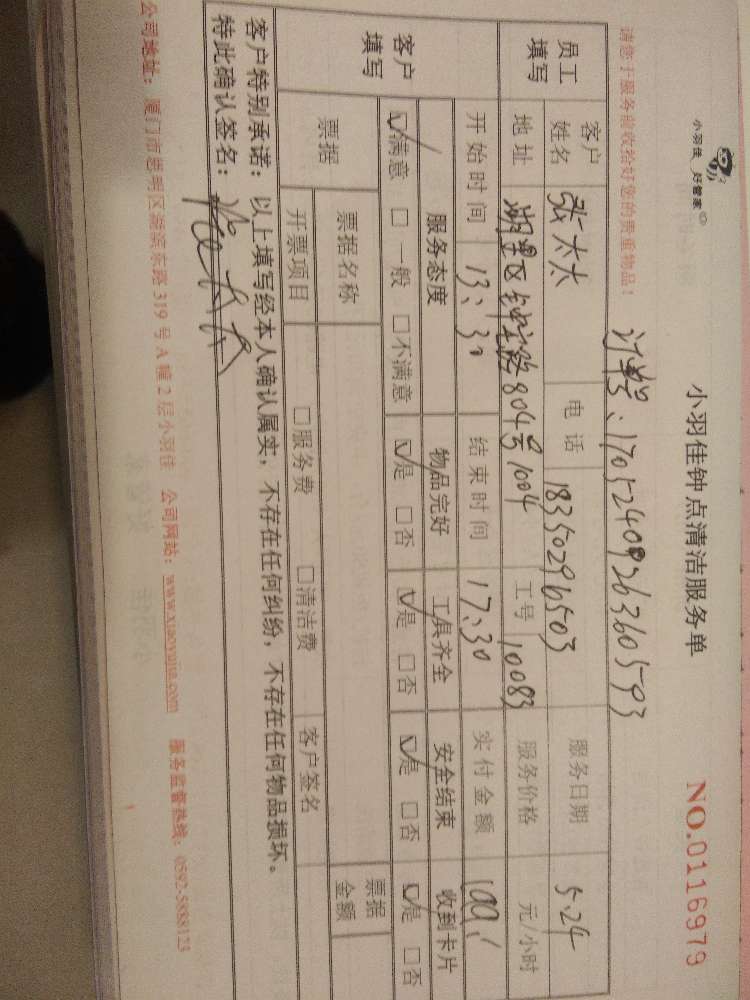 小羽佳 好管家
小羽佳钟点清洁服务单 NO.0116979
请您于服务前收拾好您的贵重物品！ 订单号：17052409263605793
员工填写 客户姓名 张太太 电话 18350296503 服务日期 5.24
地址 湖里区钟宅路804号1004 工号 10083 服务价格 元/小时
开始时间 13:30 结束时间 17:30 实付金额 100
客户填写 服务态度 物品完好 工具齐全 安全结束 收到卡片
☑满意 □一般 □不满意 ☑是 □否 ☑是 □否 ☑是 □否 ☑是 □否
票据 票据名称 票据金额
开票项目 □服务费 □清洁费 客户签名
客户特别承诺：以上填写经本人确认属实，不存在任何纠纷，不存在任何物品损坏。
特此确认签名：
公司地址：厦门市思明区湖滨东路319号A幢2层小羽佳 公司网站：www.xiaoyujia.com 服务监督热线：0592-5888123